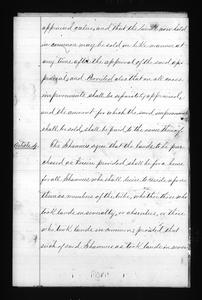 appraised value, and that the lands now held
in common may be sold in like manner at
any time after the approval of the said ap-
praisal, and Provided also that in all cases
improvements shall be separately appraised,
and the amount for which the said improvements
shall be sold, shall be paid to the owner thereof.
Article 4.
The Shawnees agree that the lands to be pur-
chased as herein provided shall be for a home
for all Shawnees who shall desire to reside upon
them as members of the tribe, whether those who
took lands in severalty, or absentees, or those
who took lands in common; provided that
such of said Shawnees as took lands in seve-